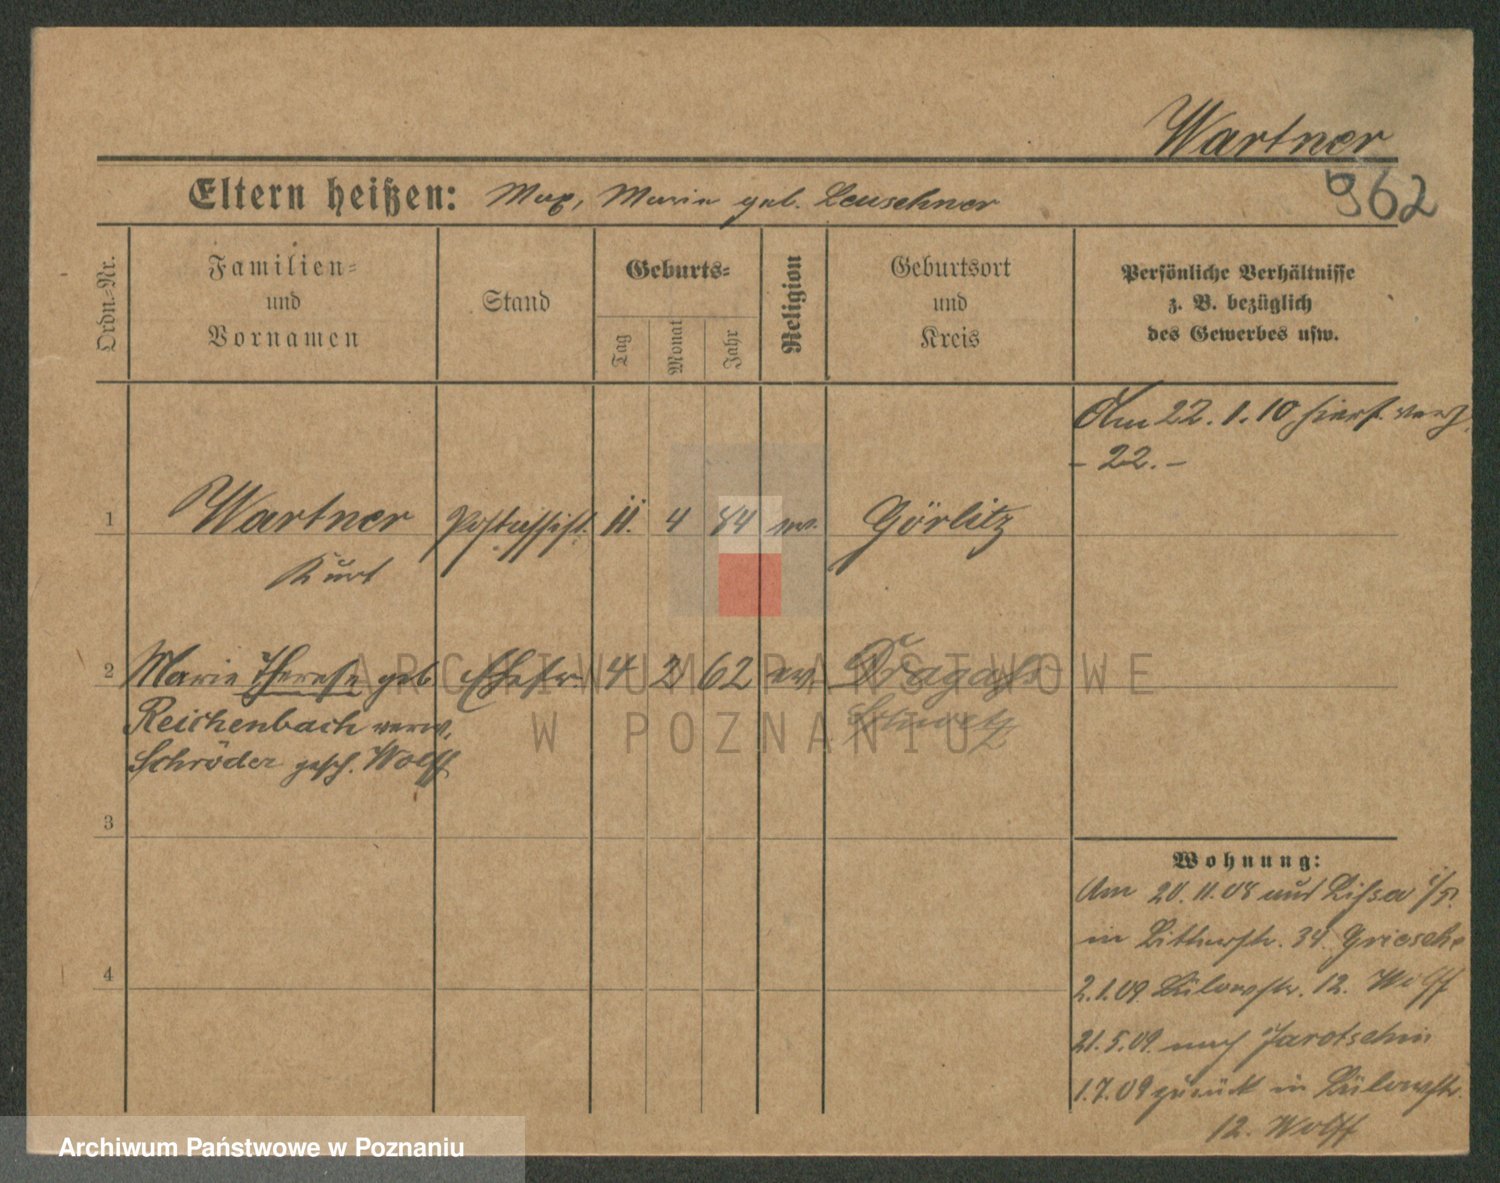 Wartner
962
Eltern heißen: Max, Marie geb. Leuschner
Ordn.-Nr.
Familien=
und
Vornamen
Stand
Geburts=
Tag
Monat
Jahr
Religion
Geburtsort
und
Kreis
Persönliche Verhältnisse
z. B. bezüglich
des Gewerbes usw.
Am 22.1.10 hiers. verh.
- 22. -
1 Wartner Postassist. 11. 4 84 ev. Görlitz
Kurt
2 Marie Therese geb Ehefr. 4 2 62 ev. Dragass
Reichenbach verw. Schwetz
Schröder gesch. Wolff
3
4
Wohnung:
Am 20.11.08 aus Lissa i/P.
in 34. Griesche
2.1.09 Bülowstr. 12. Wolff
21.5.09. nach Jarotschin
1.7.09 zurück in Bülowstr.
12. Wolff
ARCHIWUM PAŃSTWOWE
W POZNANIU
Archiwum Państwowe w Poznaniu